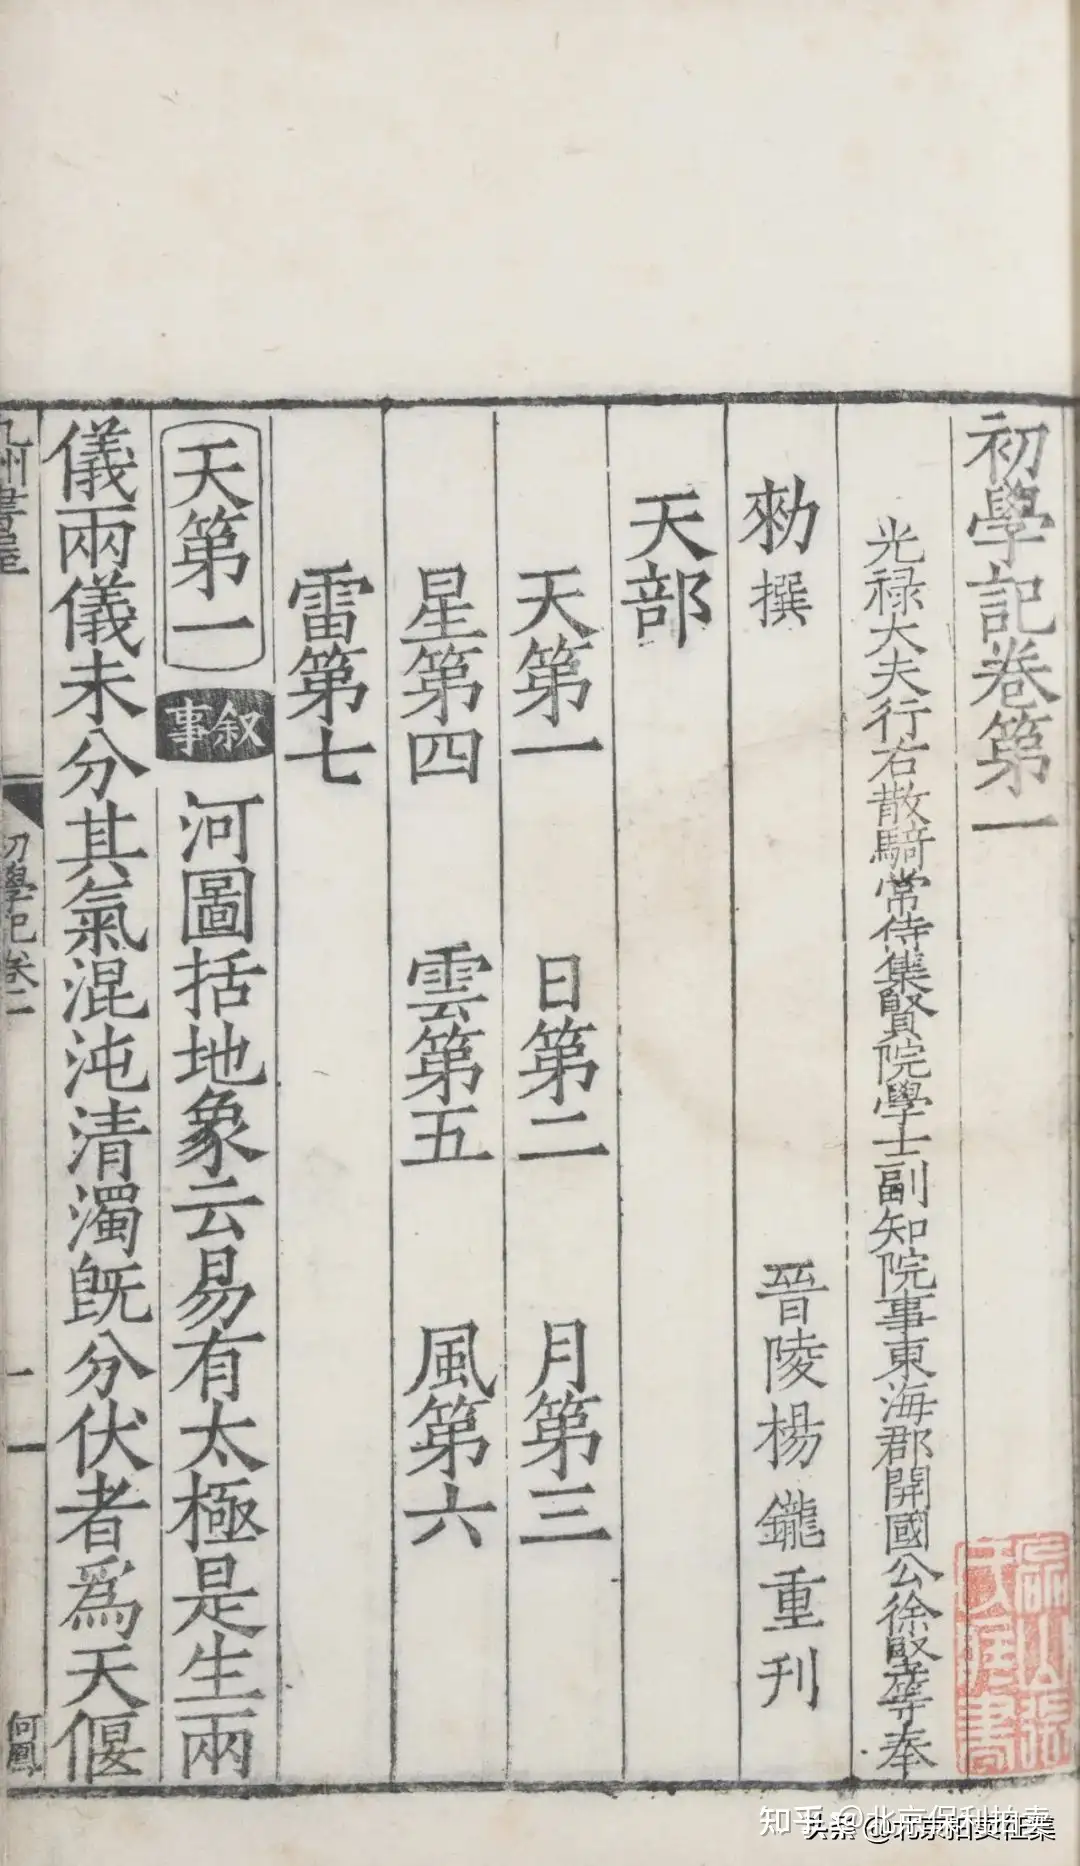 初學記卷第一
光禄大夫行右散騎常侍集賢院學士副知院事東海郡開國公徐堅等奉
勑撰 晉陵楊鑨重刊
天部
天第一 日第二 月第三
星第四 雲第五 風第六
雷第七
天第一 叙事 河圖括地象云易有太極是生兩
儀兩儀未分其氣混沌清濁旣分伏者爲天偃
九州書屋 初學記卷一 一 何鳳
知乎 @北京保利拍卖
头条 @北京拍卖征集